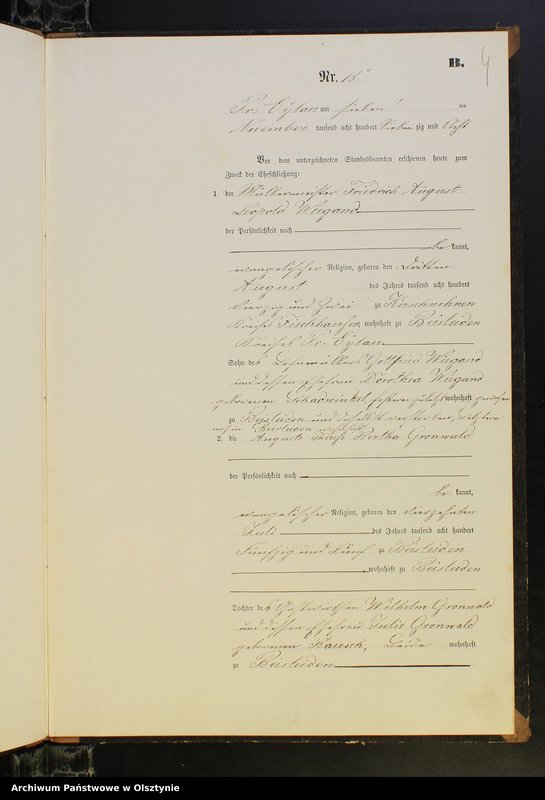 B.
4
Nr. 15.
Pr. Eylau am sieben ten
November tausend acht hundert Sieben zig und Acht
Vor dem unterzeichneten Standesbeamten erschienen heute zum
Zweck der Eheschließung:
1. der Müllermeister Friedrich August
Leopold Wiegand
der Persönlichkeit nach
be kannt,
evangelischer Religion, geboren den dritten
August des Jahres tausend acht hundert
vierzig und zwei zu Kirschnehnen
Kreises Fischhausen, wohnhaft zu Beisleiden
Kreises Pr. Eylau
Sohn des Gottfried Wiegand
und dessen Ehefrau Dorothea Wiegand
geborenen Schadwinkel, wohnhaft
zu Beisleiden und daselbst verstorben, letztere
noch in Beisleiden wohnhaft
2. die Auguste Bertha Gronwald
der Persönlichkeit nach
be kannt,
evangelischer Religion, geboren den vierzehnten
Juli des Jahres tausend acht hundert
Fünfzig und Fünf zu Beisleiden
, wohnhaft zu Beisleiden
Tochter des Gastwirthen Wilhelm Gronwald
und dessen Ehefrau Julie Gronwald
geborenen Rausch, Beide wohnhaft
zu Beisleiden
Archiwum Państwowe w Olsztynie